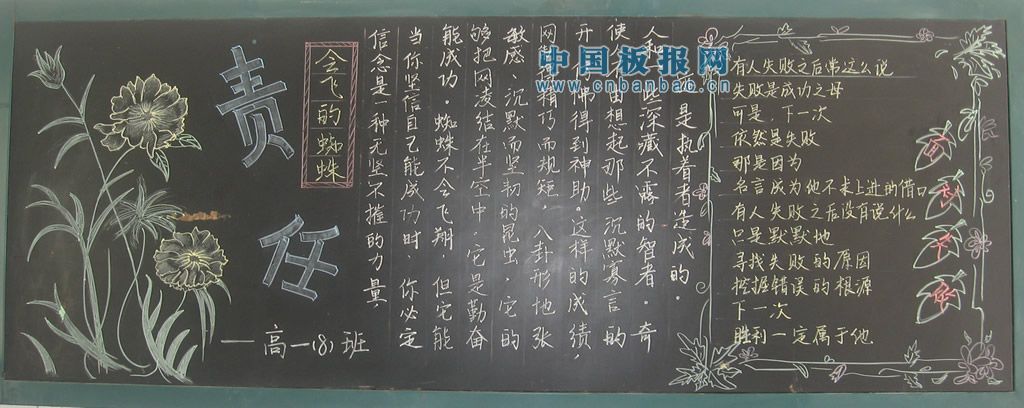 责任
会飞的蜘蛛
一高一(8)班
信念是一种无坚不摧的力量
当你坚信自己能成功时，你必定
能成功。蜘蛛不会飞翔，但它能
够把网凌结在半空中。它是勤奋
敏感、沉默而坚韧的昆虫，它的
网 精巧而规矩，八卦形地张
开 佛得到神助，这样的成绩，
使 由想起那些沉默寡言的
人和 些深藏不露的智者。奇
是执着者造成的。
中国板报网
www.cnbanbao.cn
有人失败之后常这么说
失败是成功之母
可是，下一次
依然是失败
那是因为
名言成为他不求上进的借口
有人失败之后没有说什么
只是默默地
寻找失败的原因
挖掘错误的根源
下一次
胜利一定属于他